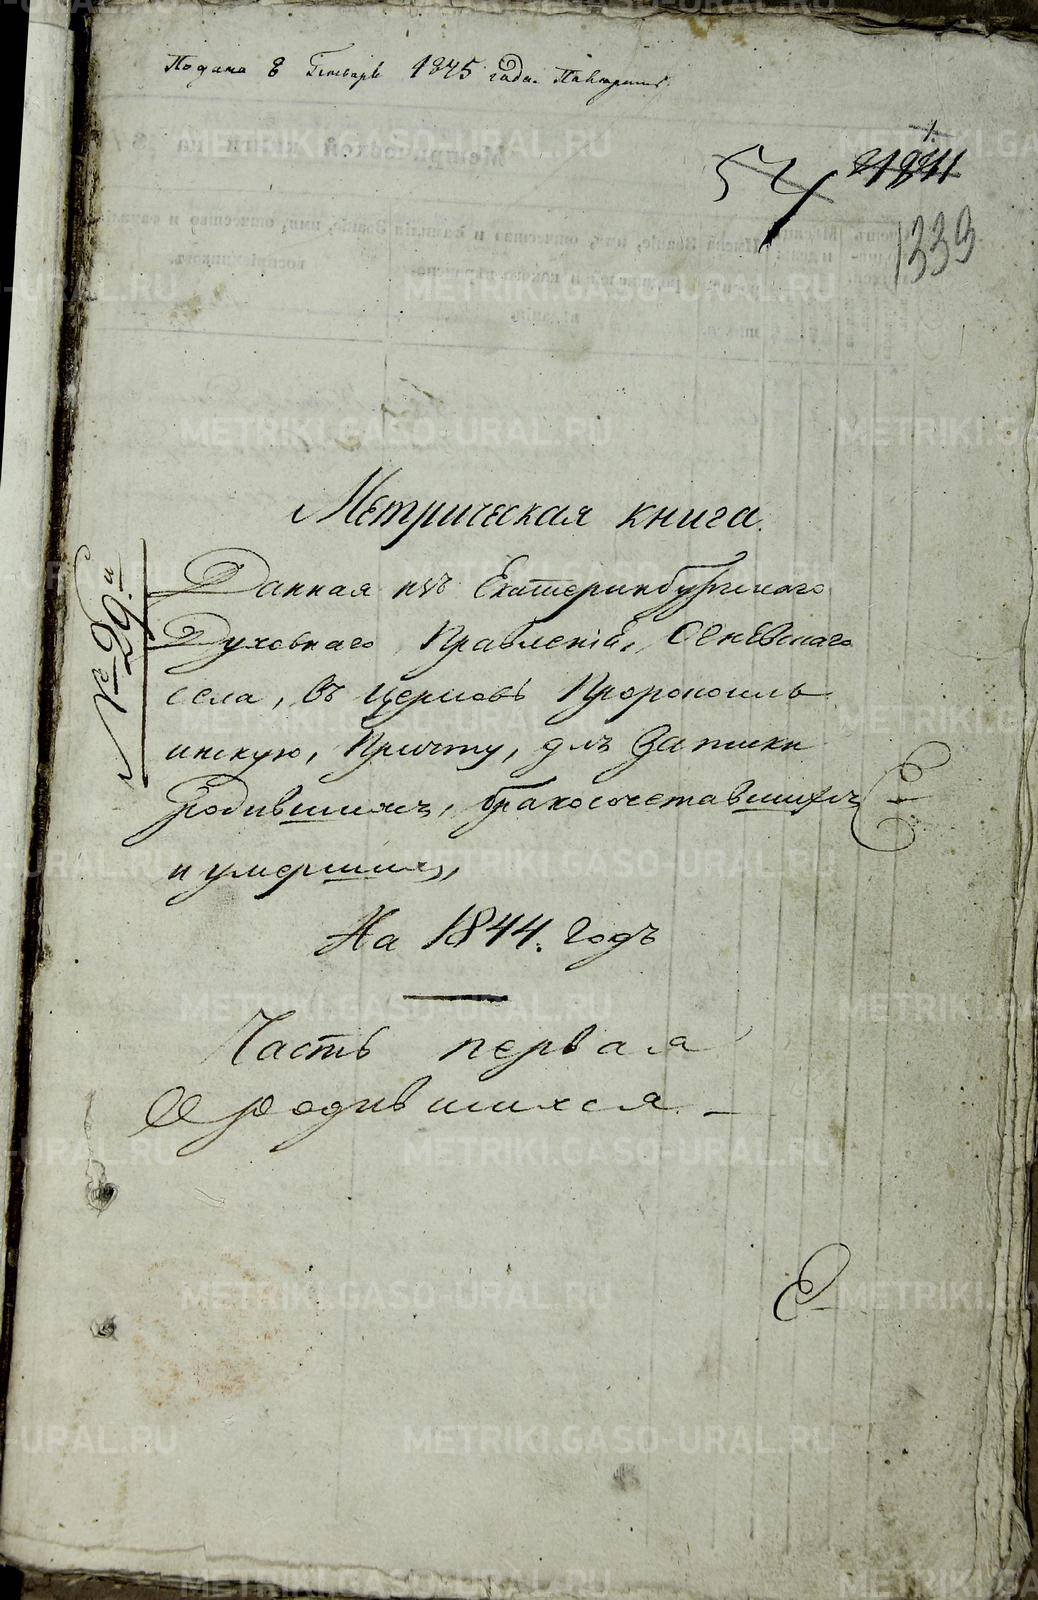 Подана 8 Генваря 1845 года.
54 21841
1.
1339
Метрическая книга.
№ 29.й
Данная изъ Екатеринбургскаго
Духовнаго Правленія, Огнёвскаго
села, въ церковь Пророкоиль
инскую, Причту, для Записки
Родившихся, бракосочетавшихся
и умершихъ,
На 1844. Годъ
Часть первая
О родившихся.
METRIKI.GASO-URAL.RU